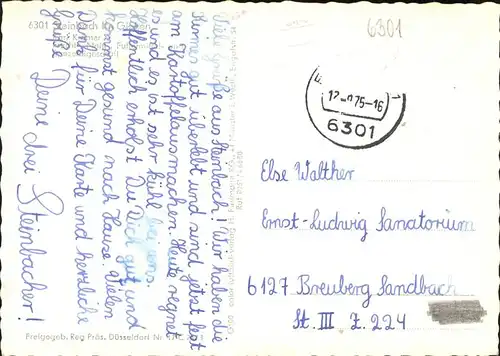 6301
6301 Steinbach
Viele Grüße aus Steinbach! Wir haben die
Kirmes gut überlebt und sind jetzt fest
am Kartoffelausmachen. Heute regnet
es und es ist sehr kühl
Hoffentlich erholst Du Dich gut und
kommst gesund nach Hause. Vielen
Dank für Deine Karte und herzliche
Grüße
Deine drei Steinbacher!
Freigegeb. Reg Präs. Düsseldorf Nr.
75-16
6301
Else Walther
Ernst-Ludwig Sanatorium
6127 Breuberg Sandbach
St. III Z. 224